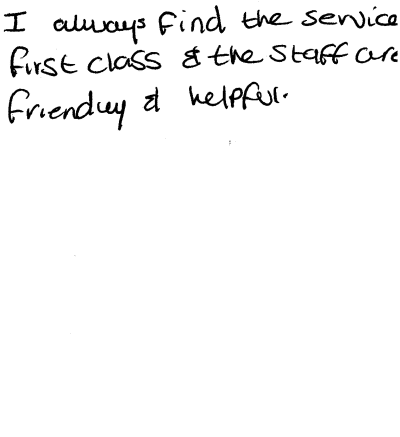 I always find the service
first class & the staff are
friendly & helpful.